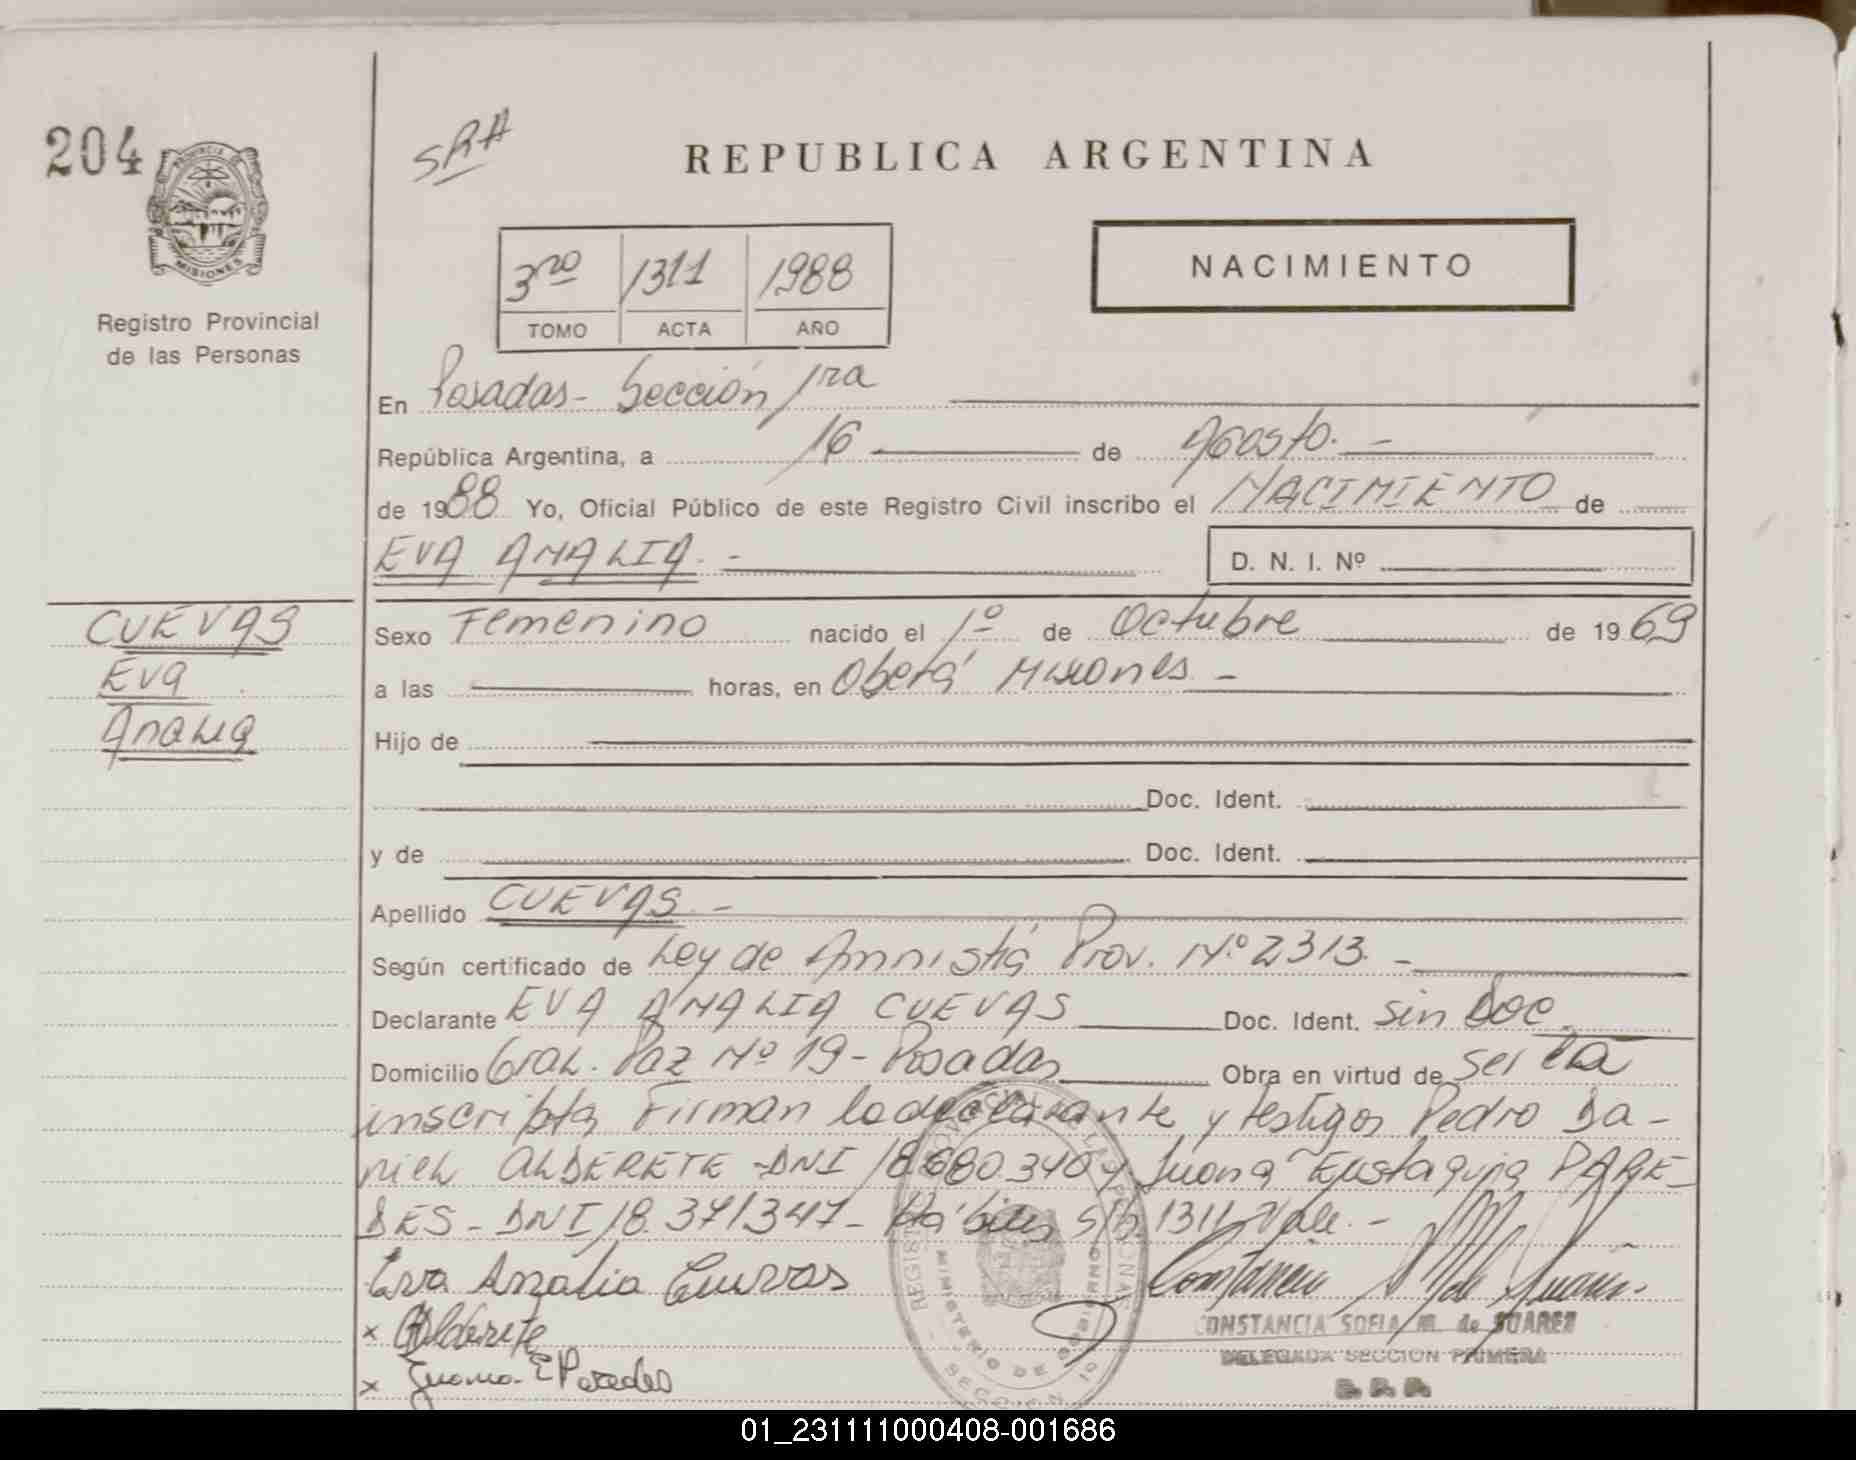 204
PROVINCIA DE
MISIONES
Registro Provincial
de las Personas
SRA
REPUBLICA ARGENTINA
3ro 1311 1988
TOMO ACTA AÑO
NACIMIENTO
En Posadas - Sección 1ra
República Argentina, a 16 de Agosto. -
de 1988 Yo, Oficial Público de este Registro Civil inscribo el NACIMIENTO de
EVA AMALIA. - D. N. I. Nº
CUEVAS
Eva
Amalia
Sexo Femenino nacido el 1º de Octubre de 1969
a las horas, en Oberá Misiones -
Hijo de
Doc. Ident.
y de Doc. Ident.
Apellido CUEVAS. -
Según certificado de Ley de Amnistía Prov. Nº 2313. -
Declarante EVA AMALIA CUEVAS Doc. Ident. sin Doc.
Domicilio Gral. Paz Nº 19 - Posadas Obra en virtud de ser la
inscripta Firman la declarante y testigos Pedro Da-
niel ALDERETE - DNI 18.680.340 y Juana Eustaquia PARE-
DES - DNI 18.371347 - Hábiles S/b 1311 Vale. -
Eva Analia Cuevas
x Alderete
x Juana E Paredes
CONSTANCIA SOFIA M. de SUAREZ
DELEGADA SECCION PRIMERA
R. P. P.
MINISTERIO DE GOBIERNO
SECCION 1º
01_231111000408-001686